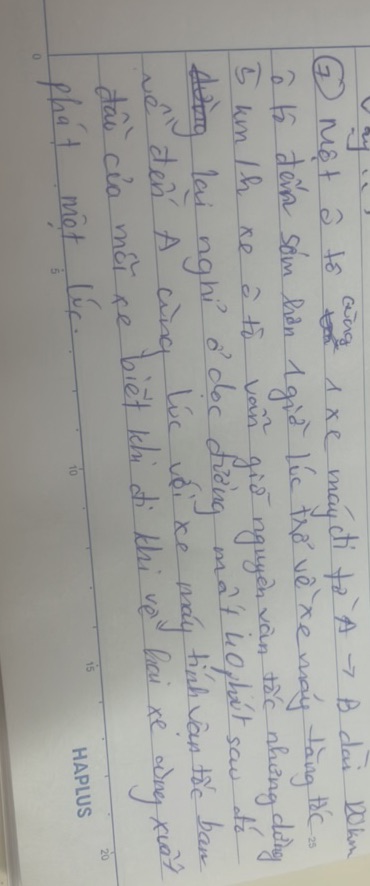 ⑦ Một ô tô cùng 1 xe máy đi từ A → B dài 120km
ô tô đến sớm hơn 1 giờ lúc trở về xe máy tăng tốc
5 km/h xe ô tô vẫn giữ nguyên vận tốc nhưng dừng
lại nghỉ ở dọc đường mất 40 phút sau đó
về đến A cùng lúc với xe máy tính vận tốc ban
đầu của mỗi xe biết khi đi khi về hai xe cùng xuất
phát một lúc.
0 5 10 15 20
HAPLUS
25